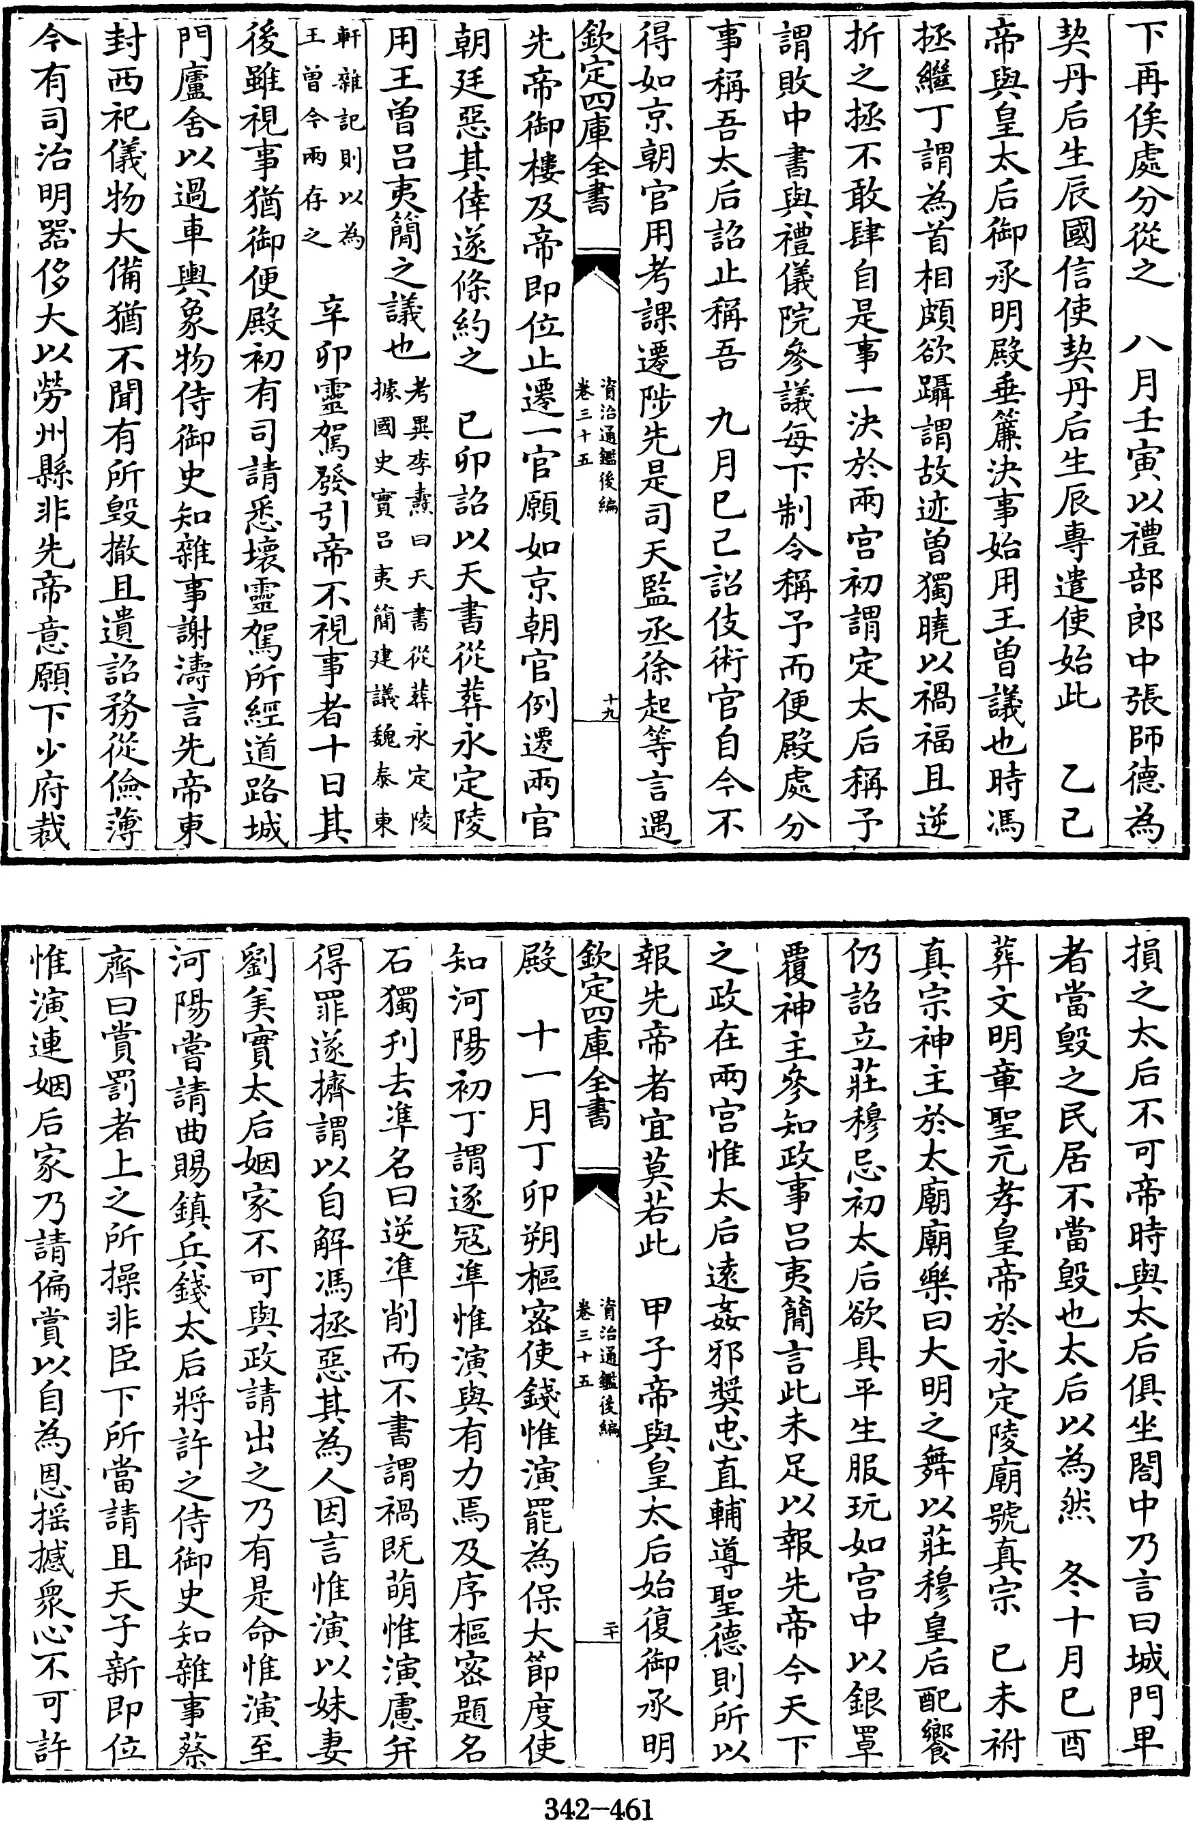 下再俟處分從之　八月壬寅以禮部郎中張師德為
契丹后生辰國信使契丹后生辰專遣使始此　乙巳
帝與皇太后御承明殿垂簾決事始用王曽議也時馮
拯繼丁謂為首相頗欲躡謂故迹曽獨曉以禍福且逆
折之拯不敢肆自是事一決於兩宫初謂定太后稱予
謂敗中書與禮儀院參議每下制令稱予而便殿處分
事稱吾太后詔止稱吾　九月己巳詔伎術官自今不
得如京朝官用考課遷陟先是司天監丞徐起等言遇
欽定四庫全書
資治通鑑後編
卷三十五
十九
先帝御樓及帝即位止遷一官願如京朝官例遷兩官
朝廷惡其倖遂條約之　已卯詔以天書從葬永定陵
用王曽吕夷簡之議也考異李燾曰天書從葬永定陵
據國史實吕夷簡建議魏泰東
軒雜記則以為
王曽今兩存之　辛卯靈駕發引帝不視事者十日其
後雖視事猶御便殿初有司請悉壞靈駕所經道路城
門廬舍以過車輿象物侍御史知雜事謝濤言先帝東
封西祀儀物大備猶不聞有所毁撤且遺詔務從儉薄
今有司治明器侈大以勞州縣非先帝意願下少府裁
損之太后不可帝時與太后俱坐閤中乃言曰城門卑
者當毁之民居不當毁也太后以為然　冬十月已酉
葬文明章聖元孝皇帝於永定陵廟號真宗　已未祔
真宗神主於太廟廟樂曰大明之舞以莊穆皇后配饗
仍詔立莊穆忌初太后欲具平生服玩如宫中以銀罩
覆神主參知政事吕夷簡言此未足以報先帝今天下
之政在兩宫惟太后遠姦邪奬忠直輔導聖德則所以
報先帝者宜莫若此　甲子帝與皇太后始復御承明
欽定四庫全書
資治通鑑後編
卷三十五
二十
殿　十一月丁卯朔樞密使錢惟演罷為保大節度使
知河陽初丁謂逐冦凖惟演與有力焉及序樞密題名
石獨刋去凖名曰逆凖削而不書謂禍既萌惟演慮并
得罪遂擠謂以自解馮拯惡其為人因言惟演以妹妻
劉美實太后姻家不可與政請出之乃有是命惟演至
河陽嘗請曲賜鎮兵錢太后將許之侍御史知雜事蔡
齊曰賞罰者上之所操非臣下所當請且天子新即位
惟演連姻后家乃請偏賞以自為恩摇撼衆心不可許
342-461